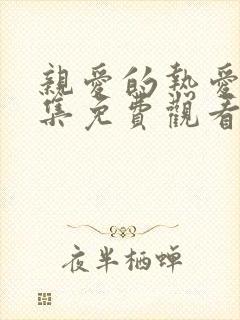 親愛的熱愛
集免費觀看
夜半栖蝉